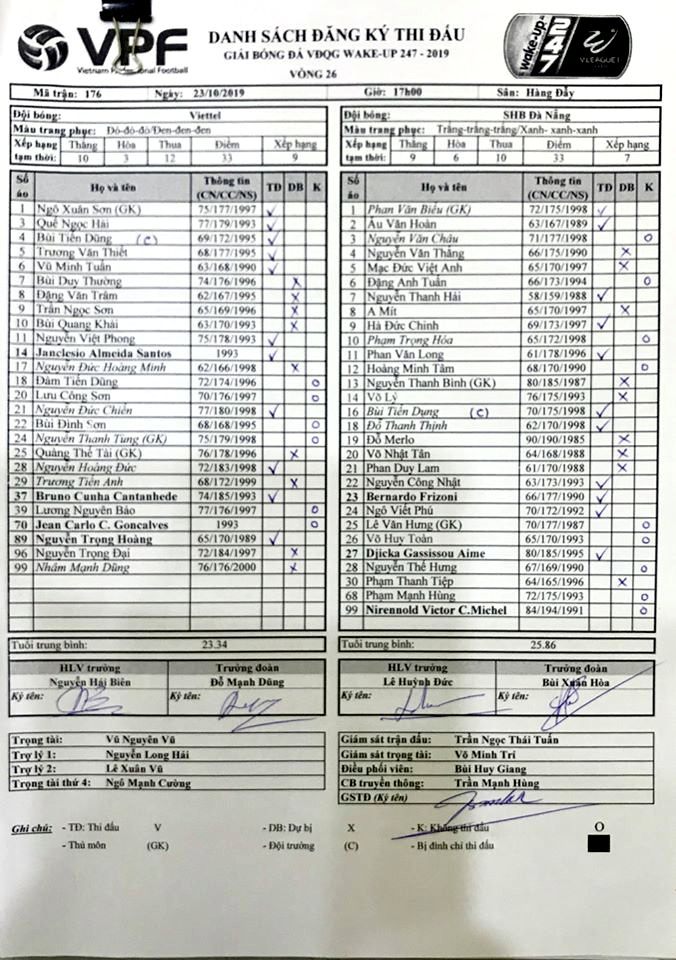 VPF
Vietnam Professional Football
DANH SÁCH ĐĂNG KÝ THI ĐẤU
GIẢI BÓNG ĐÁ VĐQG WAKE-UP 247 - 2019
VÒNG 26
wake-up 247
V.LEAGUE 1
Mã trận: 176 Ngày: 23/10/2019 Giờ: 17h00 Sân: Hàng Đẫy
Đội bóng: Viettel
Màu trang phục: Đỏ-đỏ-đỏ/Đen-đen-đen
Xếp hạng tạm thời: Thắng Hòa Thua Điểm Xếp hạng
10 3 12 33 9
Số áo Họ và tên Thông tin (CN/CC/NS) TĐ DB K
1 Ngô Xuân Sơn (GK) 75/177/1997 ✓
3 Quế Ngọc Hải 77/179/1993 ✓
4 Bùi Tiến Dũng (C) 69/172/1995 ✓
5 Trương Văn Thiết 68/177/1995 ✓
6 Vũ Minh Tuấn 63/168/1990 ✓
7 Bùi Duy Thường 74/176/1996 X
8 Đặng Văn Trâm 62/167/1995 X
9 Trần Ngọc Sơn 65/169/1996 X
10 Bùi Quang Khải 63/170/1993 X
11 Nguyễn Việt Phong 75/178/1993 ✓
14 Janclesio Almeida Santos 1993 ✓
17 Nguyễn Đức Hoàng Minh 62/166/1998 X
18 Đàm Tiến Dũng 72/174/1996 O
20 Lưu Công Sơn 70/176/1997 O
21 Nguyễn Đức Chiến 77/180/1998 ✓
22 Bùi Đình Sơn 68/168/1995 O
24 Nguyễn Thanh Tùng (GK) 75/179/1998 O
25 Quàng Thế Tài (GK) 76/178/1996 X
28 Nguyễn Hoàng Đức 72/183/1998 ✓
29 Trương Tiến Anh 68/172/1999 X
37 Bruno Cunha Cantanhede 74/185/1993 ✓
39 Lương Nguyên Bảo 77/176/1997 O
70 Jean Carlo C. Goncalves 1993 O
89 Nguyễn Trọng Hoàng 65/170/1989 ✓
96 Nguyễn Trọng Đại 72/184/1997 X
99 Nhâm Mạnh Dũng 76/176/2000 X
Tuổi trung bình: 23.34
HLV trưởng Trưởng đoàn
Nguyễn Hải Biên Đỗ Mạnh Dũng
Ký tên: Ký tên:
Đội bóng: SHB Đà Nẵng
Màu trang phục: Trắng-trắng-trắng/Xanh- xanh-xanh
Xếp hạng tạm thời: Thắng Hòa Thua Điểm Xếp hạng
9 6 10 33 7
Số áo Họ và tên Thông tin (CN/CC/NS) TĐ DB K
1 Phan Văn Biểu (GK) 72/175/1998 ✓
2 Âu Văn Hoàn 63/167/1989 ✓
3 Nguyễn Văn Châu 71/177/1998 O
4 Nguyễn Văn Thắng 66/175/1990 X
5 Mạc Đức Việt Anh 65/170/1997 X
6 Đặng Anh Tuấn 66/173/1994 O
7 Nguyễn Thanh Hải 58/159/1988 ✓
8 A Mít 65/170/1997 X
9 Hà Đức Chinh 69/173/1997 ✓
10 Phạm Trọng Hóa 65/172/1998 O
11 Phan Văn Long 61/178/1996 ✓
12 Hoàng Minh Tâm 68/170/1990 O
13 Nguyễn Thanh Bình (GK) 80/185/1987 X
14 Võ Lý 76/175/1993 X
16 Bùi Tiến Dụng (C) 70/175/1998 ✓
18 Đỗ Thanh Thịnh 62/170/1998 ✓
19 Đỗ Merlo 90/190/1985 X
20 Võ Nhật Tân 64/168/1988 X
21 Phan Duy Lam 61/170/1988 X
22 Nguyễn Công Nhật 63/173/1993 ✓
23 Bernardo Frizoni 66/177/1990 ✓
24 Ngô Viết Phú 70/172/1992 ✓
25 Lê Văn Hưng (GK) 70/177/1987 O
26 Võ Huy Toàn 65/170/1993 O
27 Djicka Gassissou Aime 80/185/1995 ✓
28 Nguyễn Thế Hưng 67/169/1990 O
30 Phạm Thanh Tiệp 64/165/1996 X
68 Phạm Mạnh Hùng 72/175/1993 O
99 Nirennold Victor C.Michel 84/194/1991 O
Tuổi trung bình: 25.86
HLV trưởng Trưởng đoàn
Lê Huỳnh Đức Bùi Xuân Hòa
Ký tên: Ký tên:
Trọng tài: Vũ Nguyên Vũ
Trợ lý 1: Nguyễn Long Hải
Trợ lý 2: Lê Xuân Vũ
Trọng tài thứ 4: Ngô Mạnh Cường
Giám sát trận đấu: Trần Ngọc Thái Tuấn
Giám sát trọng tài: Võ Minh Trí
Điều phối viên: Bùi Huy Giang
CB truyền thông: Trần Mạnh Hùng
GSTĐ (Ký tên)
Ghi chú: - TĐ: Thi đấu V - DB: Dự bị X - K: Không thi đấu O
- Thủ môn (GK) - Đội trưởng (C) - Bị đình chỉ thi đấu